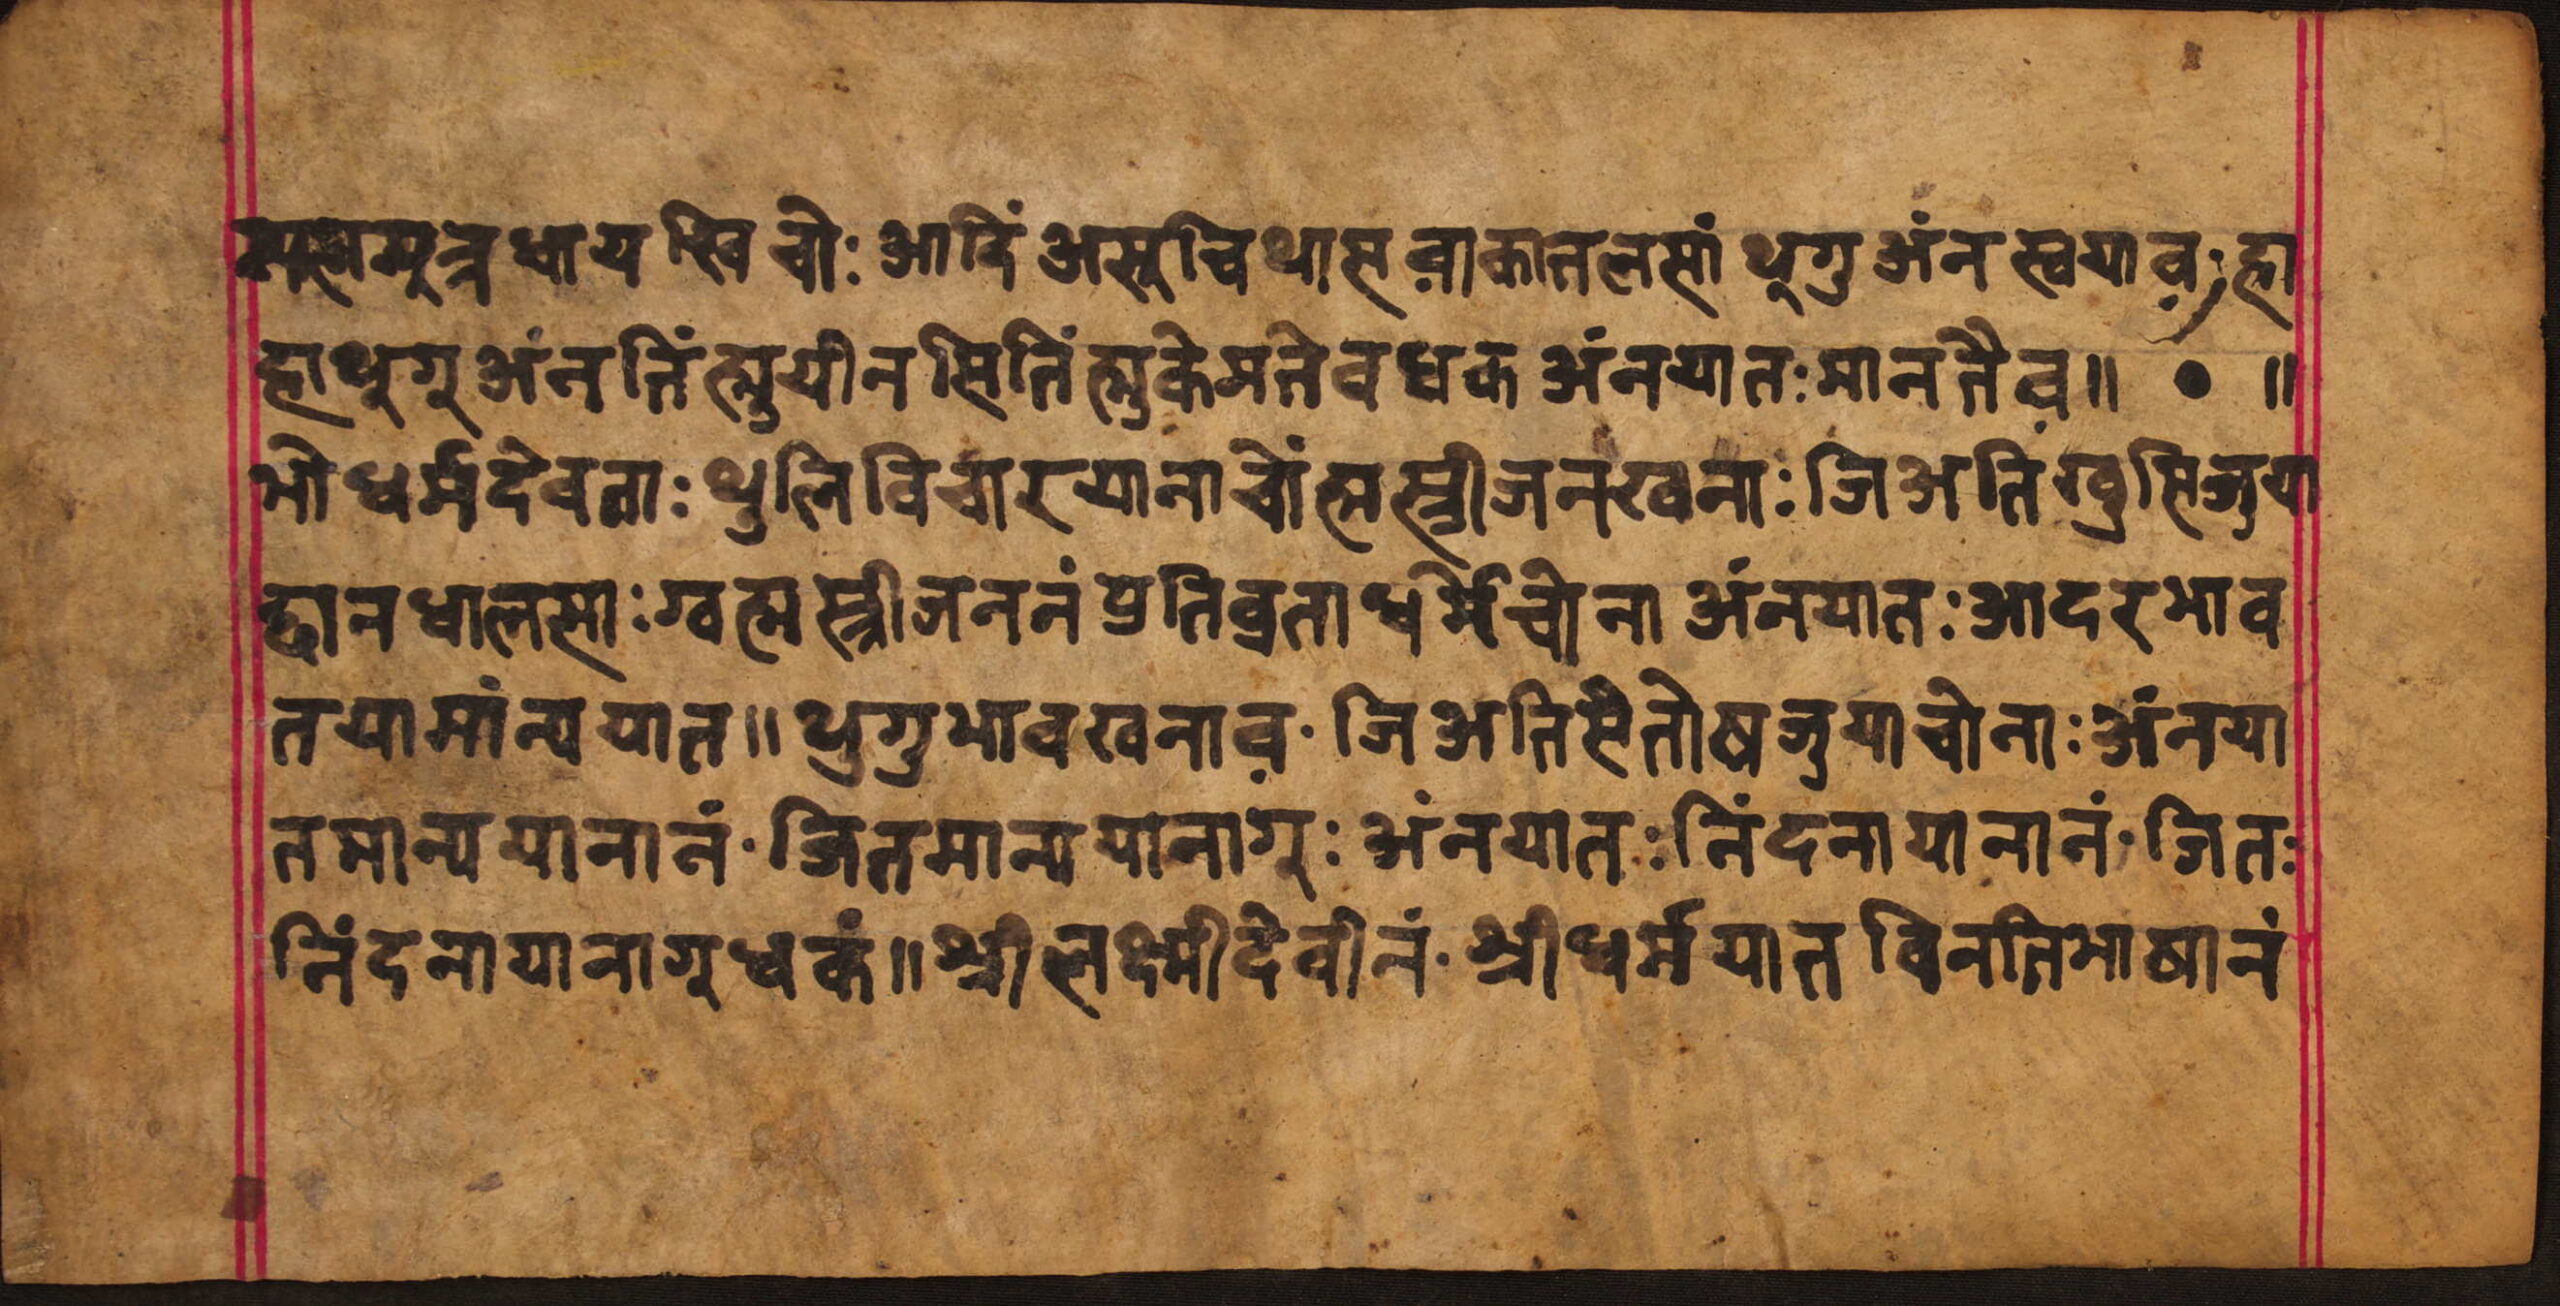 मलमुत्र धाय खि चोः आदिं असुचि थास वाकातलसां थुगु अंन स्वयाव हा
हा थुगु अंन तिं ह्मुयीन सितिं ह्मुकेमतेव धक अंनयातः मानतैव॥ ● ॥
भो धर्मदेवताः थुलि विचारयाना चोंह्म स्त्रीजनखनाः जि अति खुसिजुया
ह्वान धालसाः ग्वह्म स्त्रीजननं प्रतिव्रता धर्मचोना अंनयातः आदरभाव
तया मांन्ययात॥ थुगु भावखनाव· जि अतिसंतोषजुया चोनाः अंनया
त मान्ययानानं· जित मान्ययानागुः अंनयातः निंदनायानानं· जितः
निंदनायानागु धकं॥ श्रीलक्ष्मीदेवीनं· श्रीधर्मयात विनतिभाषानं